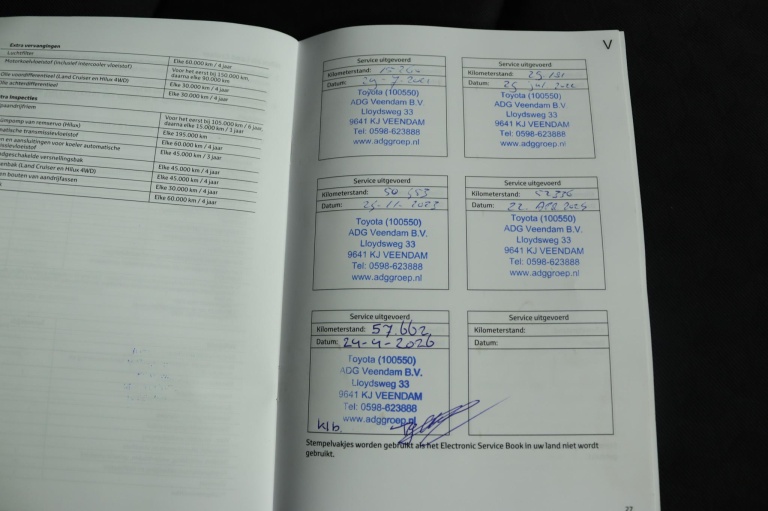 Extra vervangingen
Luchtfilter
Elke 60.000 km / 4 jaar
Motorkoelvloeistof (inclusief intercooler vloeistof)
Voor het eerst bij 150.000 km,
daarna elke 90.000 km
Olie voordifferentieel (Land Cruiser en Hilux 4WD)
Elke 30.000 km / 4 jaar
Olie achterdifferentieel
Elke 30.000 km / 4 jaar
tra inspecties
Voor het eerst bij 105.000 km / 6 jaar,
daarna elke 15.000 km / 1 jaar
ümpomp van remservo (Hilux)
Elke 195.000 km
matische transmissievloeistof
Elke 60.000 km / 4 jaar
en aansluitingen voor koeler automatische
Elke 45.000 km / 3 jaar
dgeschakelde versnellingsbak
Elke 45.000 km / 4 jaar
enbak (Land Cruiser en Hilux 4WD)
Elke 45.000 km / 4 jaar
en bouten van aandrijfassen
Elke 30.000 km / 4 jaar
Elke 60.000 km / 4 jaar
V
Service uitgevoerd
Kilometerstand:
Datum:
Toyota (100550)
ADG Veendam B.V.
Lloydsweg 33
9641 KJ VEENDAM
Tel: 0598-623888
www.adggroep.nl
Service uitgevoerd
Kilometerstand:
Datum:
Toyota (100550)
ADG Veendam B.V.
Lloydsweg 33
9641 KJ VEENDAM
Tel: 0598-623888
www.adggroep.nl
Service uitgevoerd
Kilometerstand: 50.453
Datum:
Toyota (100550)
ADG Veendam B.V.
Lloydsweg 33
9641 KJ VEENDAM
Tel: 0598-623888
www.adggroep.nl
Service uitgevoerd
Kilometerstand:
Datum: 22 APR
Toyota (100550)
ADG Veendam B.V.
Lloydsweg 33
9641 KJ VEENDAM
Tel: 0598-623888
www.adggroep.nl
Service uitgevoerd
Kilometerstand: 57.662
Datum: 24-4-2026
Toyota (100550)
ADG Veendam B.V.
Lloydsweg 33
9641 KJ VEENDAM
Tel: 0598-623888
www.adggroep.nl
Service uitgevoerd
Kilometerstand:
Datum:
Stempelvakjes worden gebruikt als het Electronic Service Book in uw land niet wordt
gebruikt.